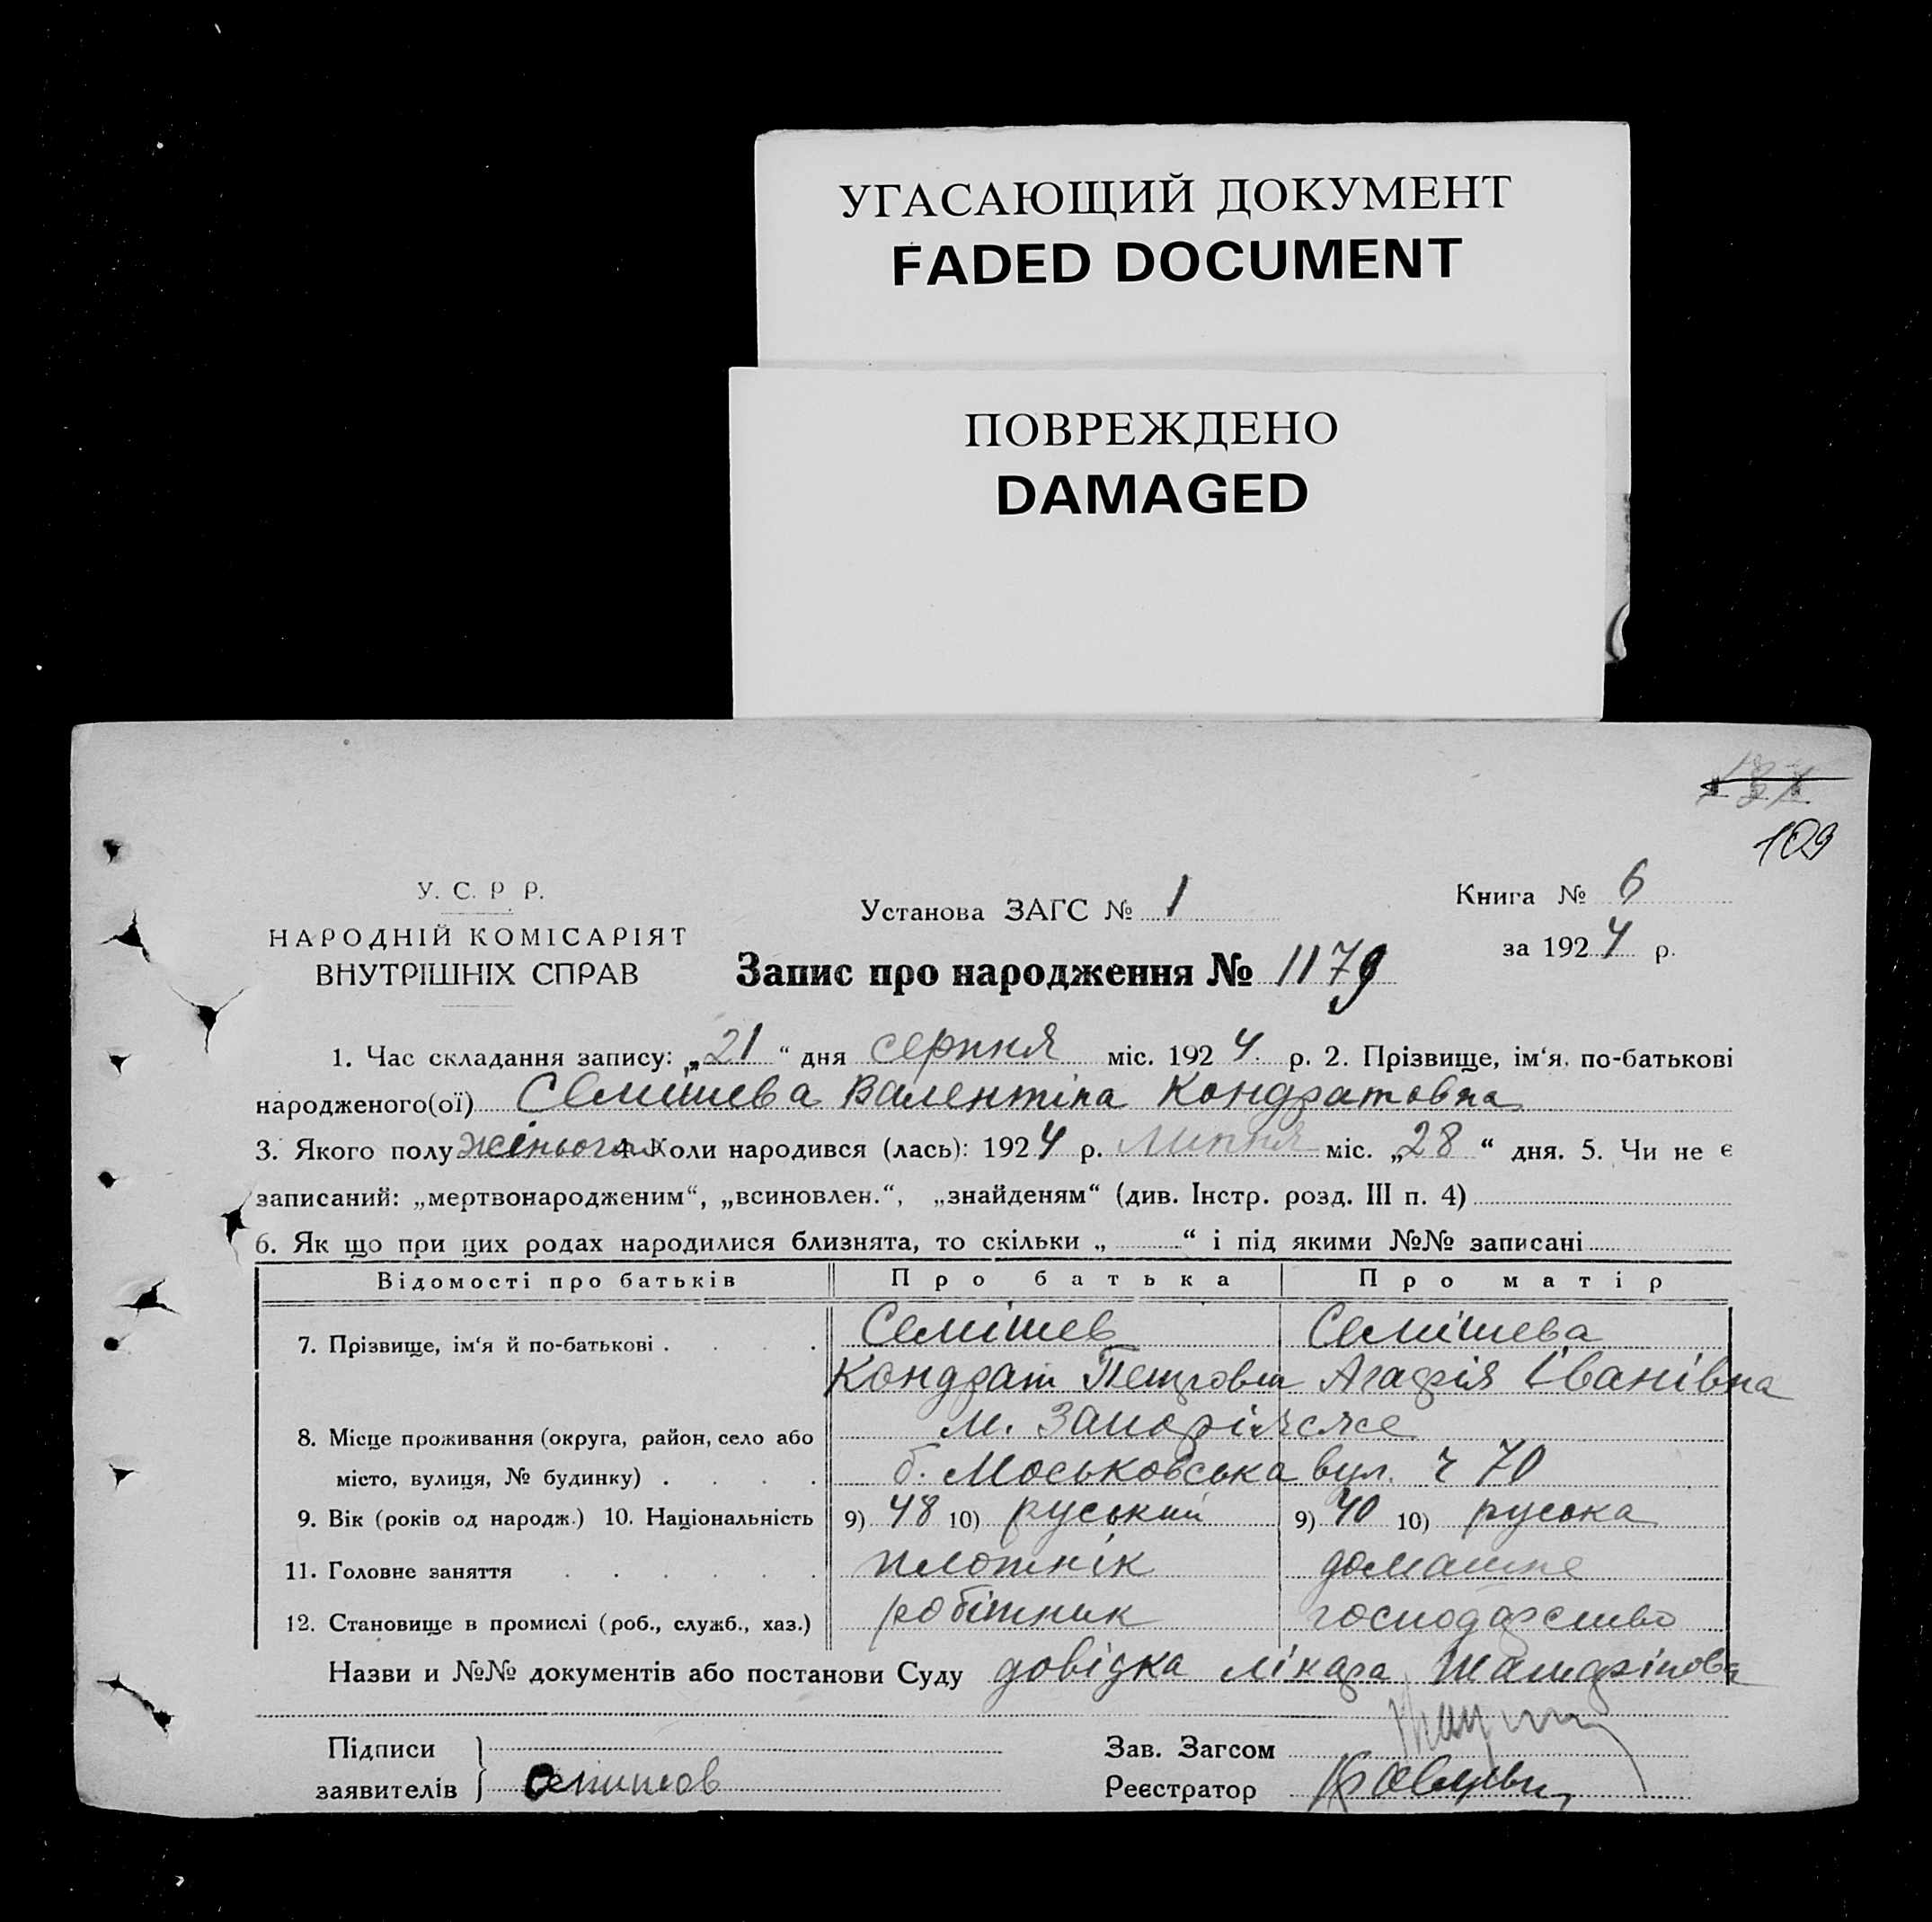 УГАСАЮЩИЙ ДОКУМЕНТ
FADED DOCUMENT
ПОВРЕЖДЕНО
DAMAGED
109
У. С. Р. Р.
НАРОДНІЙ КОМІСАРІЯТ
ВНУТРІШНІХ СПРАВ
Установа ЗАГС № 1
Книга № 6
за 1924 р.
Запис про народження № 1179
1. Час складання запису: „21“ дня серпня міс. 1924 р. 2. Прізвище, ім‘я, по-батькові
народженого(ої) Семішева Валентіна Кондратовна
3. Якого полу жіночого 4. Коли народився (лась): 1924 р. Липня міс. „28“ дня. 5. Чи не є
записаний: „мертвонародженим“, „всиновлен.“, „знайденям“ (див. Інстр. розд. III п. 4)
6. Як що при цих родах народилися близнята, то скільки „ “ і під якими №№ записані
Відомості про батьків Про батька Про матір
7. Прізвище, ім‘я й по-батькові Семішев Семішева
Кондрат Петровіч Агафія Іванівна
8. Місце проживання (округа, район, село або м. Запоріжже
місто, вулиця, № будинку) б. Моськовська вул. ч 70
9. Вік (років од народж.) 10. Національність 9) 48 10) руський 9) 40 10) руська
11. Головне заняття плотнік домашне
12. Становище в промислі (роб., служб., хаз.) робітник господарство
Назви и №№ документів або постанови Суду довідка лікара
Підписи Зав. Загсом
заявителів Реєстратор